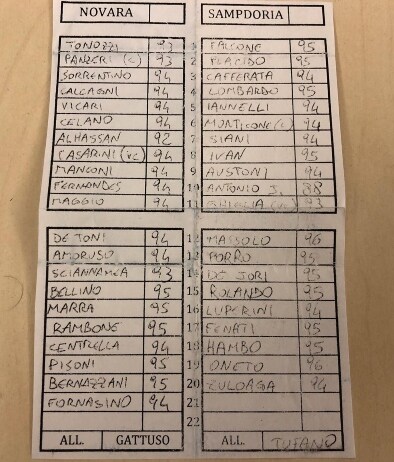 NOVARA SAMPDORIA
TONOZZI 93 1 FALCONE 95
PANZERI (C) 93 2 PLACIDO 95
SORRENTINO 94 3 CAFFERATA 94
CALCAGNI 94 4 LOMBARDO 95
VICARI 94 5 IANNELLI 94
CELANO 94 6 MONTICONE 94
ALHASSAN 92 7 SIANI 94
CASARINI (VC) 94 8 IVAN 95
MANCONI 94 9 AUSTONI 94
FERNANDES 94 10 ANTONIO J. 88
MAGGIO 94 11 93
DE TONI 94 12 MASSOLO 96
AMORUSO 94 13 PORRO 95
SCIANNAMEA 93 14 DE JORI 95
BELLINO 95 15 ROLANDO 95
MARRA 95 16 LUPERINI 94
RAMBONE 95 17 FENATI 95
CENTRELLA 94 18 HAMBO 95
PISONI 95 19 ONETO 96
BERNAZZANI 95 20 ZULOAGA 94
FORNASINO 94 21
22
ALL. GATTUSO ALL. TUFANO